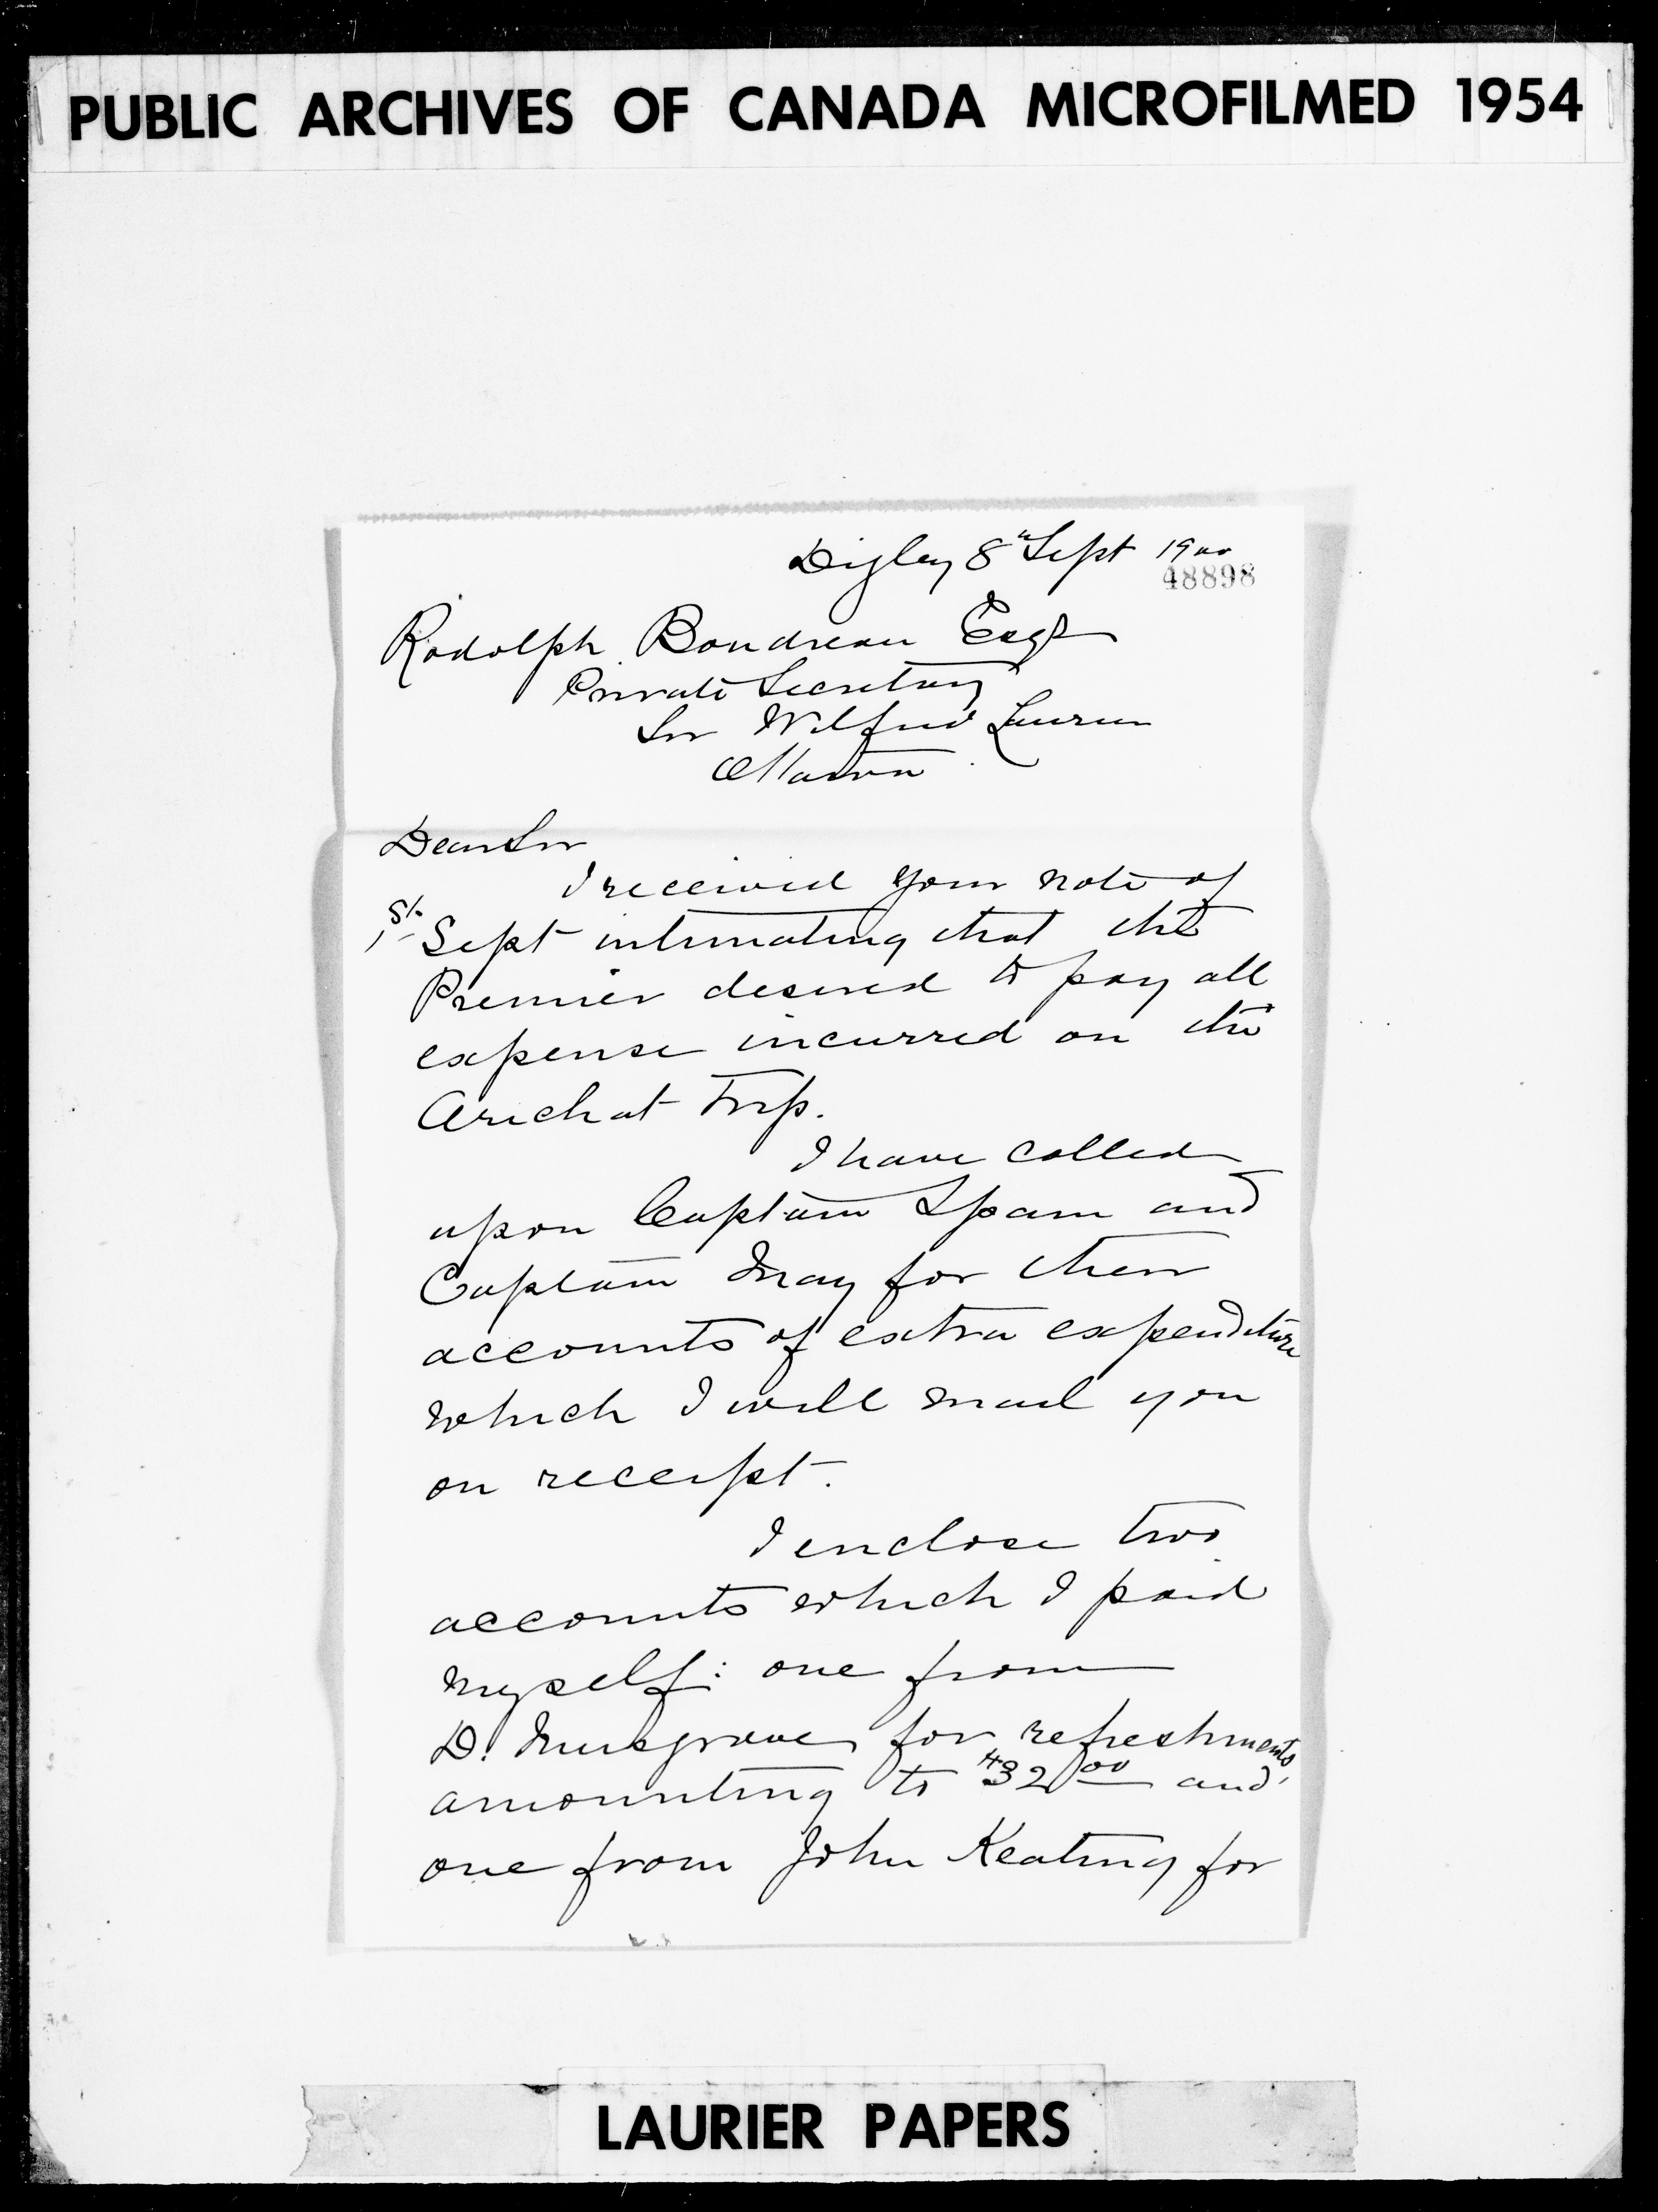 PUBLIC ARCHIVES OF CANADA MICROFILMED 1954
Digby 8th Sept 1900
48898
Rodolph Boudreau Esqr
Private Secretary
Sir Wilfrid Laurier
Ottawa
Dear Sir
I received your note of
1st Sept intimating that the
Premier desired to pay all
expense incurred on the
Arichat trip.
I have called
upon Captain Spain and
Captain May for their
accounts of extra expenditure
which I will mail you
on receipt.
I enclose two
accounts which I paid
myself: one from
D. Musgrave for refreshments,
amounting to $32 00 and
one from John Keating for
LAURIER PAPERS